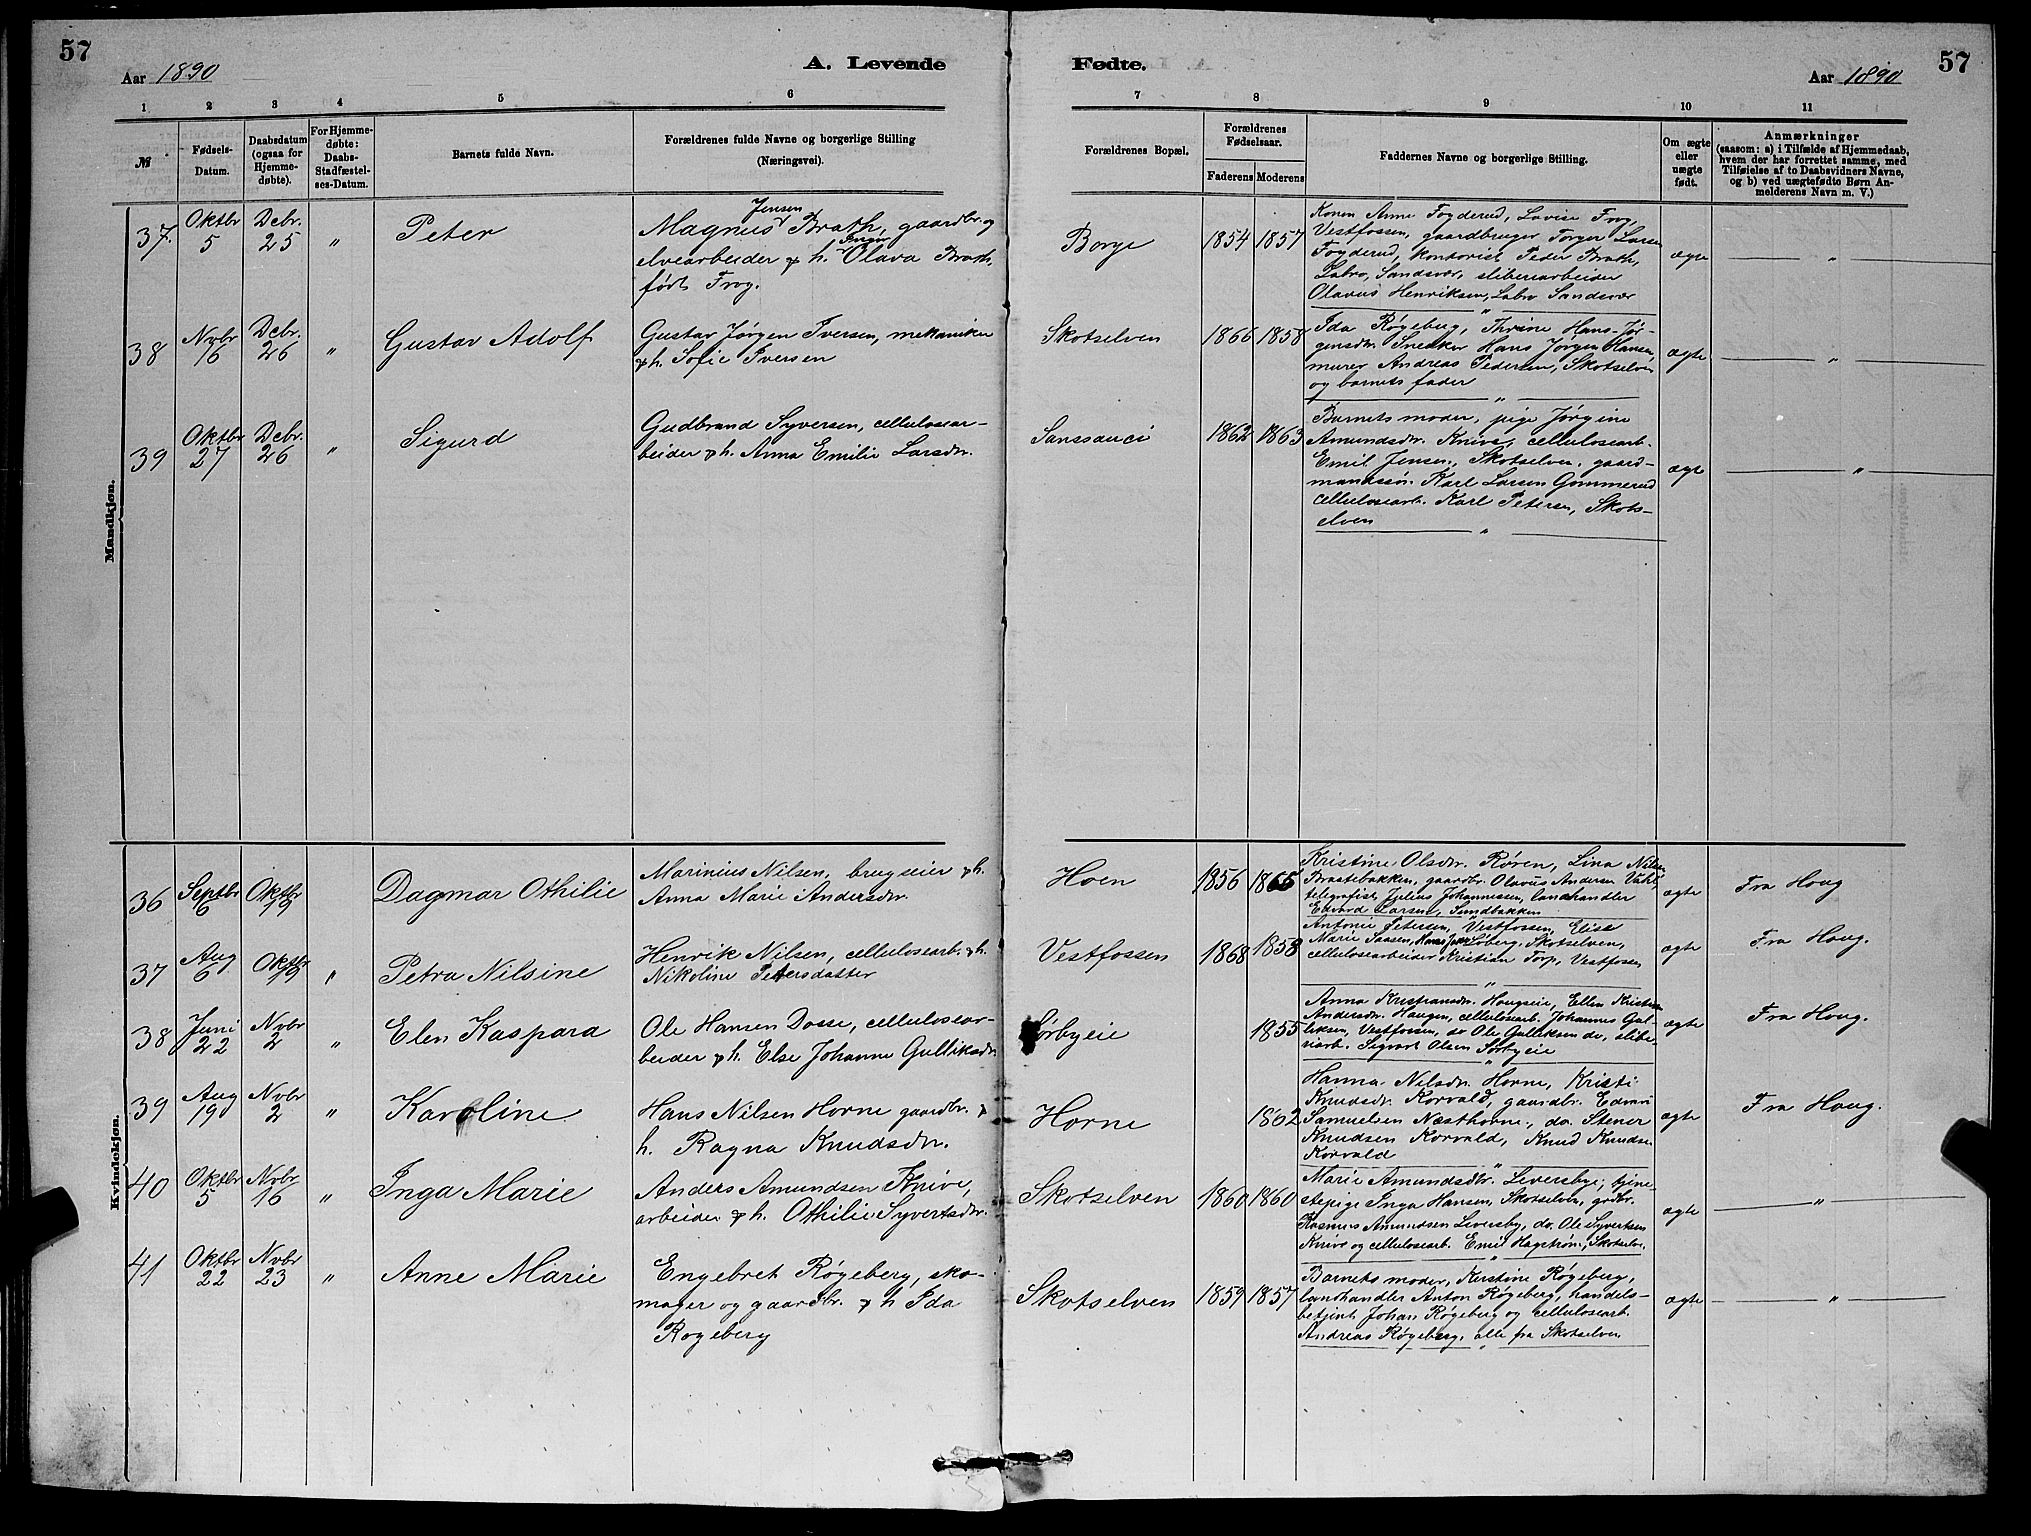 57
Aar 1890
A. Levende
Fødte.
Aar 1890
57
1 2 3 4 5 6 7 8 9 10 11
№
Fødsels-
Datum.
Daabsdatum
(ogsaa for
Hjemme-
døbte).
For Hjemme-
døbte:
Daabs-
Stadfæstel-
ses-Datum.
Barnets fulde Navn.
Forældrenes fulde Navne og borgerlige Stilling
(Næringsvei).
Forældrenes Bopæl.
Forældrenes
Fødselsaar.
Faderens Moderens
Faddernes Navne og borgerlige Stilling.
Om ægte
eller
uægte
født.
Anmærkninger
(saasom: a) i Tilfælde af Hjemmedaab,
hvem der har forrettet samme, med
Tilføielse af to Daabsvidners Navne,
og b) ved uægtefødte Børn An-
melderens Navn m. V.)
Mandkjøn.
37.
Oktbr
5
Dcbr.
25
"
Peter
Jensen
Magnus Brath, gaardbr. og
Inger
elvearbeider & h. Olava Brath,
født Frog.
Borge
1854 1857
Konen Anne Fogderud, Lovise Frog,
Vestfossen, gaardbruger Torger Larsen
Fogderud, kontorist Peder Brath,
Labro, Sandsvær, sliberiarbeider
Olavus Henriksen, Labro Sandsvær
ægte
"
38
Nvbr
6
Dcbr.
26
"
Gustav Adolf
Gustav Jørgen Iversen, mekaniker
& h. Sofie Iversen
Skotselven
1866 1858
Ida Røgeberg, Thrine Hans-Jør-
gensdr. Snekker Hans Jørgen Hansen,
murer Andreas Pedersen, Skotselven
og barnets fader
ægte
"
39
Oktbr
27
Dcbr.
26
"
Sigurd
Gudbrand Syversen, cellulosear-
beider & h. Anna Emilie Larsdr.
Sanssauci
1862 1863
Barnets moder, pige Jørgine
Amundsdr. Knive, cellulosearb.
Emil Jensen, Skotselven, gaard-
mandssøn Karl Larsen Gommerud
cellulosearb. Karl Petersen, Skots-
elven
ægte
"
Kvindekjøn.
36
Septbr
6
Oktbr
19
Dagmar Othilie
Marinius Nilsen, brugseier & h.
Anna Marie Andersdr.
Hoen
1856 1865
Kristine Olsdr. Røren, Lina Nilsen
Brastebakken, gaardbr. Olavus Andersen
telegrafist Julius Johannessen, landhandler
Edvard Larsen, Sundbakken
ægte
Fra Houg
37
Aug
6
Oktbr
19
"
Petra Nilsine
Henrik Nilsen, cellulosearb. & h.
Nikoline Petersdatter
Vestfossen
1868 1858
Antonie Petersen, Vestfossen, Elise
Marie Saasen, Løberg, Skotselven,
cellulosearbeider Kristian Torp, Vestfossen
ægte
Fra Houg.
38
Juni
22
Nvbr
2
"
Elen Kaspara
Ole Hansen Dosse, cellulosear-
beider & h. Else Johanne Gulliksdr.
ørbyeie
1855
Anna Kristiansdr. Hougseie, Ellen Kristine
Andersdr. Haugen, cellulosearb. Johannes Gul-
liksen, Vestfossen, do Ole Gulliksen do, slibe-
riarb. Sigvart Olsen Sørbyeie
ægte
Fra Houg.
39
Aug
19
Nvbr
2
"
Karoline
Hans Nilsen Horne gaardbr. &
h. Ragna Knudsdr.
Horne
1862
Hanna Nilsdr. Horne, Kristi
Knudsdr. Korvald, gaardbr. Edvart
Samuelsen Næsthorne, do. Stener
Knudsen Korvald, Knud Knudsen
Korvald
ægte
Fra Houg.
40
Oktbr
5
Nvbr
16
"
Inga Marie
Anders Amundsen Knive,
arbeider & h. Othilie Syvertsdr.
Skotselven
1860 1860
Marie Amundsdtr. Leversbye; tjene-
stepige Inga Hansen, Skotselven, grdbr.
Rasmus Amundsen Leversby, do. Ole Syvertsen
Knive og cellulosearb. Emil Hagstrøm, Skotselv.
ægte
"
41
Oktbr
22
Nvbr
23
"
Anne Marie
Engebret Røgeberg, sko-
mager og gaardbr. & h Ida
Rogeberg
Skotselven
1859 1857
Barnets moder, Kerstine Røgeberg,
landhandler Anton Røgeberg, handels-
betjent Johan Røgeberg og cellulosearb.
Andreas Røgeberg, alle fra Skotselven
ægte
"